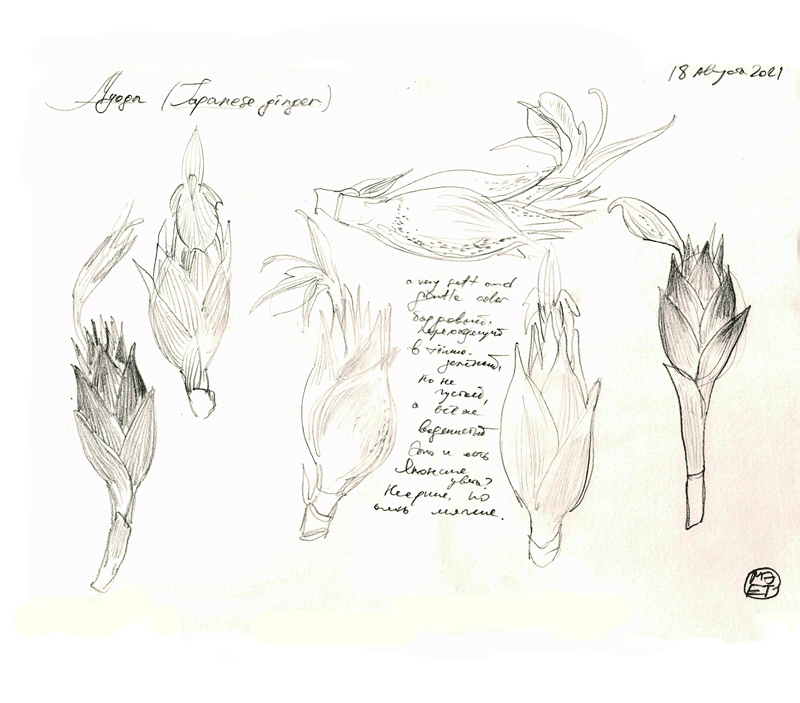 Myoga (Japanese ginger)
18 Августа 2021
a very soft and
gentle color
бордовый,
переходящий
в тёмно-
зелёный,
но не
густой,
а всё же
водянистый
Это и есть
Японские
цвета?
Не яркие, но
очень мягкие.
МЭ
ЕТ